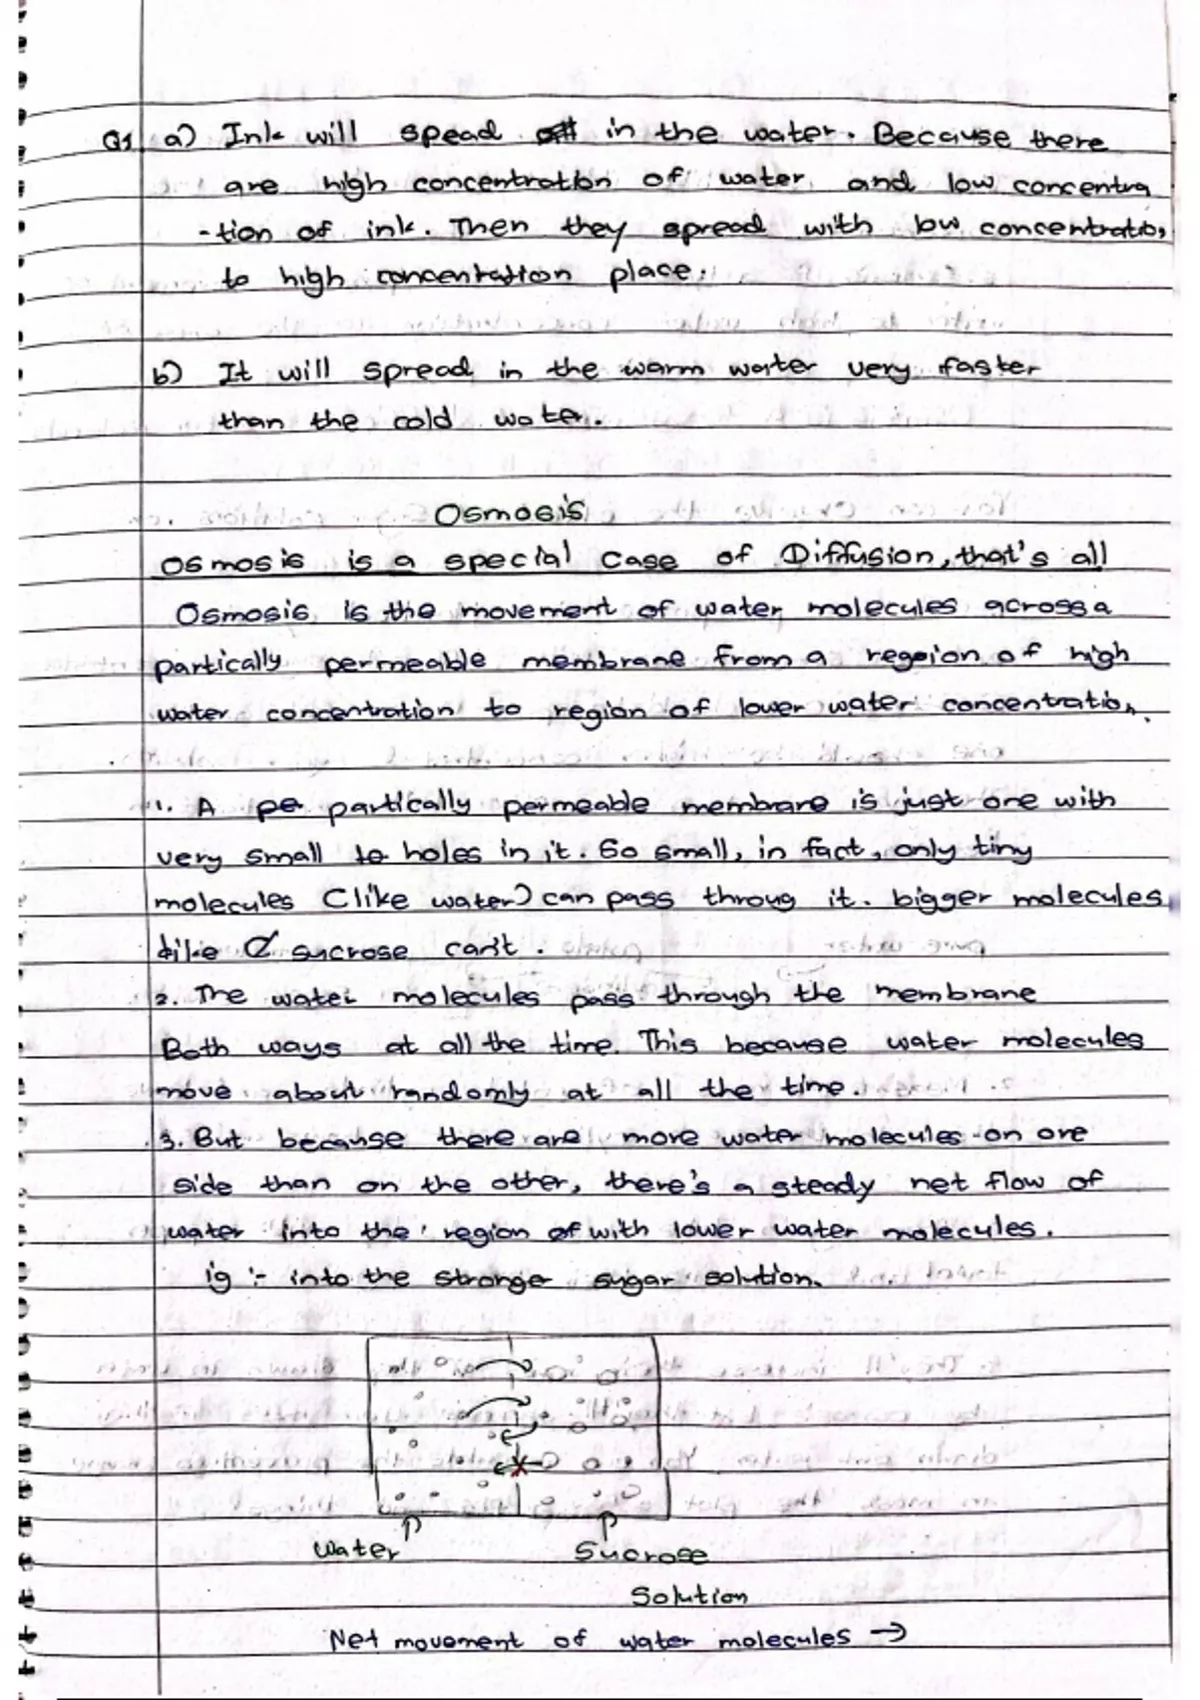 Q1 a) Ink will spead in the water. Because there
are high concentration of water and low concentra
-tion of ink. Then they spread with low concentration
to high concentration place.
b) It will spread in the warm water very faster
than the cold water.
Osmosis
Osmosis is a special case of Diffusion, that's all
Osmosis is the movement of water molecules across a
partically permeable membrane from a regoion of high
water concentration to region of lower water concentration.
1. A pe partically permeable membrane is just one with
very small to holes in it. So small, in fact, only tiny
molecules (like water) can pass throug it. bigger molecules
like sucrose can't.
2. The water molecules pass through the membrane
Both ways at all the time. This because water molecules
move about randomly at all the time.
3. But because there are more water molecules on one
side than on the other, there's a steady net flow of
water into the region of with lower water molecules.
ig :- into the stronger sugar solution.
Water
Sucrose
Solution
Net movement of water molecules →